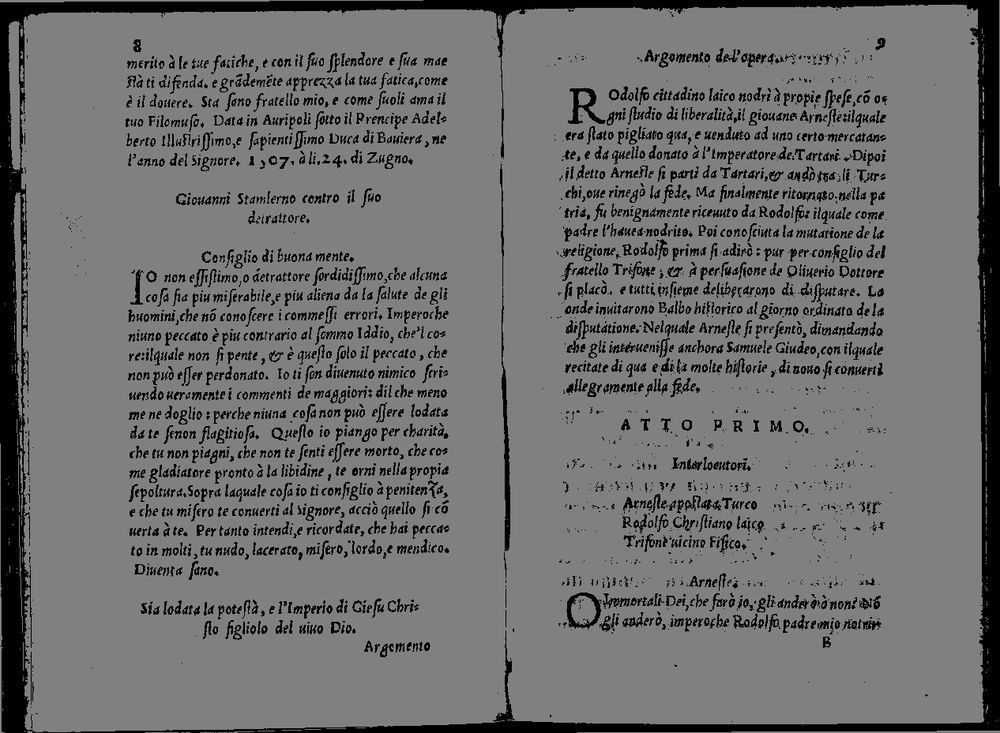 8
merito à le tue fatiche, e con il suo splendore e sua mae
stà ti difenda. e grãdemẽte apprezza la tua fatica, come
è il douere. Sta sano fratello mio, e come suoli ama il
tuo Filomuso. Data in Auripoli sotto il Prencipe Adel-
berto Illustrissimo, e sapientissimo Duca di Bauiera, ne
l'anno del Signore. 1507. à li. 24. di Zugno.
Giouanni Stamlerno contro il suo
detrattore.
Consiglio di buona mente.
IO non essistimo, o detrattore sordidissimo, che alcuna
cosa sia piu miserabile, e piu aliena da la salute de gli
huomini, che nõ conoscere i commessi errori. Imperoche
niuno peccato è piu contrario al sommo Iddio, che'l co-
re: ilquale non si pente, & è questo solo il peccato, che
non può esser perdonato. Io ti son diuenuto nimico scri-
uendo ueramente i commenti de maggiori: dil che meno
me ne doglio: perche niuna cosa non può essere lodata
da te senon flagitiosa. Questo io piango per charità,
che tu non piagni, che non te senti essere morto, che co-
me gladiatore pronto à la libidine, te orni nella propia
sepoltura. Sopra laquale cosa io ti consiglio à penitenza,
e che tu misero te conuerti al Signore, acciò quello si cõ
uerta à te. Per tanto intendi, e ricordate, che hai pecca-
to in molti, tu nudo, lacerato, misero, lordo, e mendico.
Diuenta sano.
Sia lodata la potestà, e l'Imperio di Giesu Chri-
sto figliolo del uiuo Dio.
Argomento
9
Argomento de l'opera.
ROdolfo cittadino laico nodrì à propie spese, cõ o-
gni studio di liberalità, il giouane Arneste: ilquale
era stato pigliato qua, e uenduto ad uno certo mercatan-
te, e da quello donato à l'Imperatore de Tartari. Dipoi
il detto Arneste si partì da Tartari, & andò tra li Tur-
chi, oue rinegò la fede. Ma finalmente ritornato nella pa
tria, fù benignamente riceuuto da Rodolfo: ilquale come
padre l'hauea nodrito. Poi conosciuta la mutatione de la
religione, Rodolfo prima si adirò: pur per consiglio del
fratello Trifone, & à persuasione de Oliuerio Dottore
si placò, e tutti insieme deliberarono di disputare. La
onde inuitarono Balbo historico al giorno ordinato de la
disputatione. Nelquale Arneste si presentò, dimandando
che gli interuenisse anchora Samuele Giudeo, con ilquale
recitate di qua e di la molte historie, di nouo si conuertì
allegramente alla fede.
ATTO PRIMO.
Interlocutori.
Arneste apostata Turco
Rodolfo Christiano laico
Trifone uicino Fisico.
Arneste.
O Immortali Dei, che farò io, gli anderò ò non? Nõ
gli anderò, imperoche Rodolfo padre mio
B